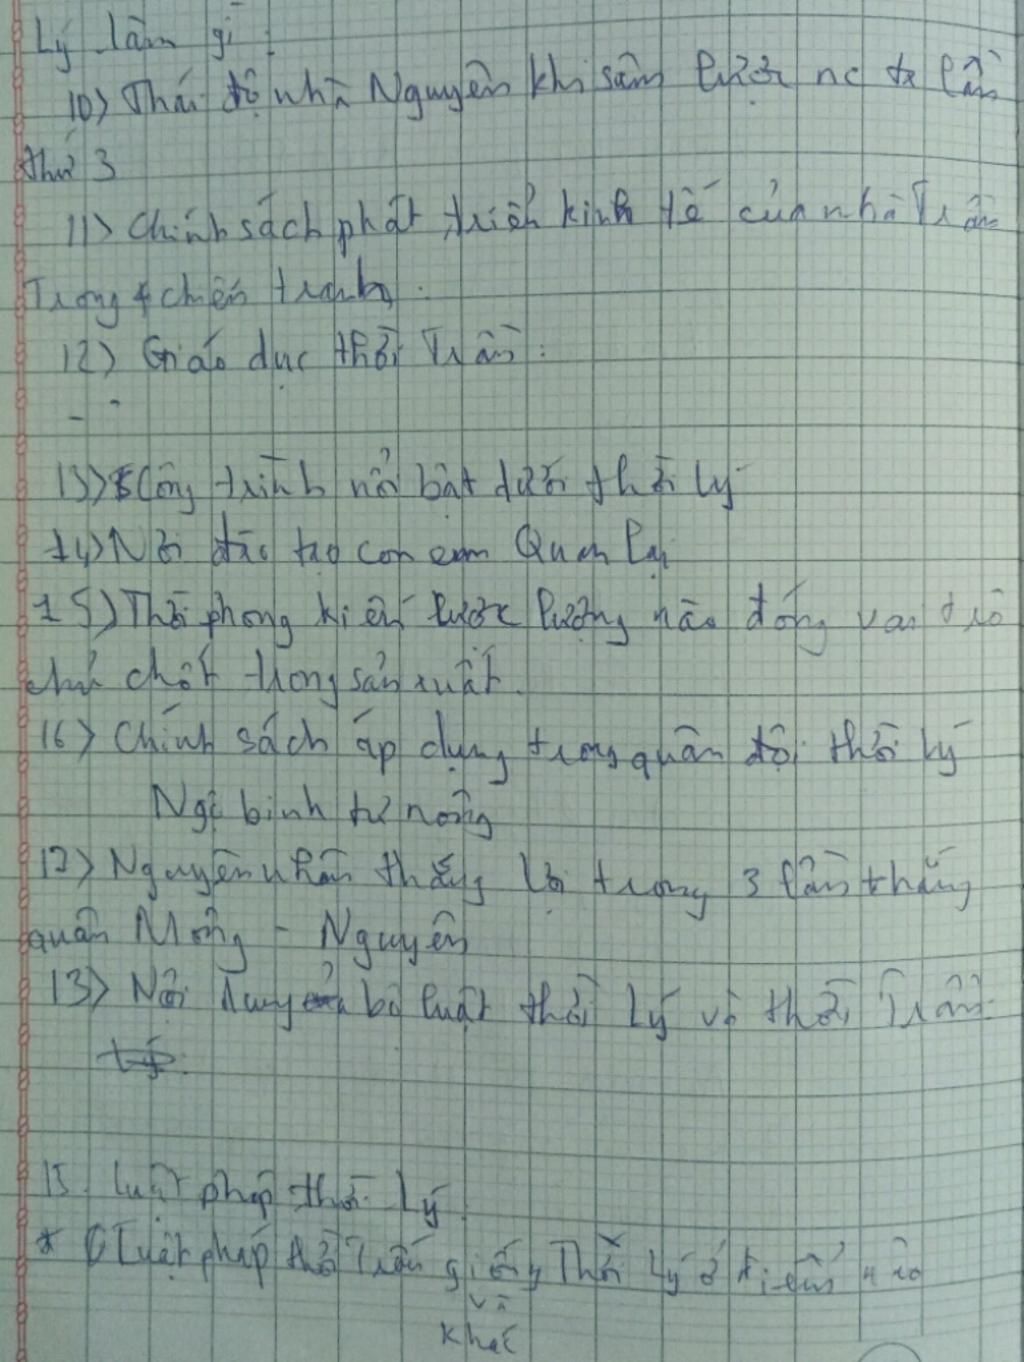 Lý làm gì :
10) Thái độ nhà Nguyên khi xâm lược nc ta lần
thứ 3
11) Chính sách phát triển kinh tế của nhà Trần
Trong chiến tranh.
12) Giáo dục thời Trần :
13) Công trình nổi bật dưới thời Lý
14) Nơi đào tạo con em Quan lại
15) Thời phong kiến lược lượng nào đóng vai trò
chủ chốt trong sản xuất.
16) Chính sách áp dụng trong quân đội thời Lý
Ngụ binh từ nông
17) Nguyên nhân thắng lợi trong 3 lần thắng
quân Mông - Nguyên
13) Nội bộ luật thời Lý và thời Trần.
15. Luật pháp thời Lý
* Luật pháp thời Trần giống Thời Lý ở điểm nào
và
khác